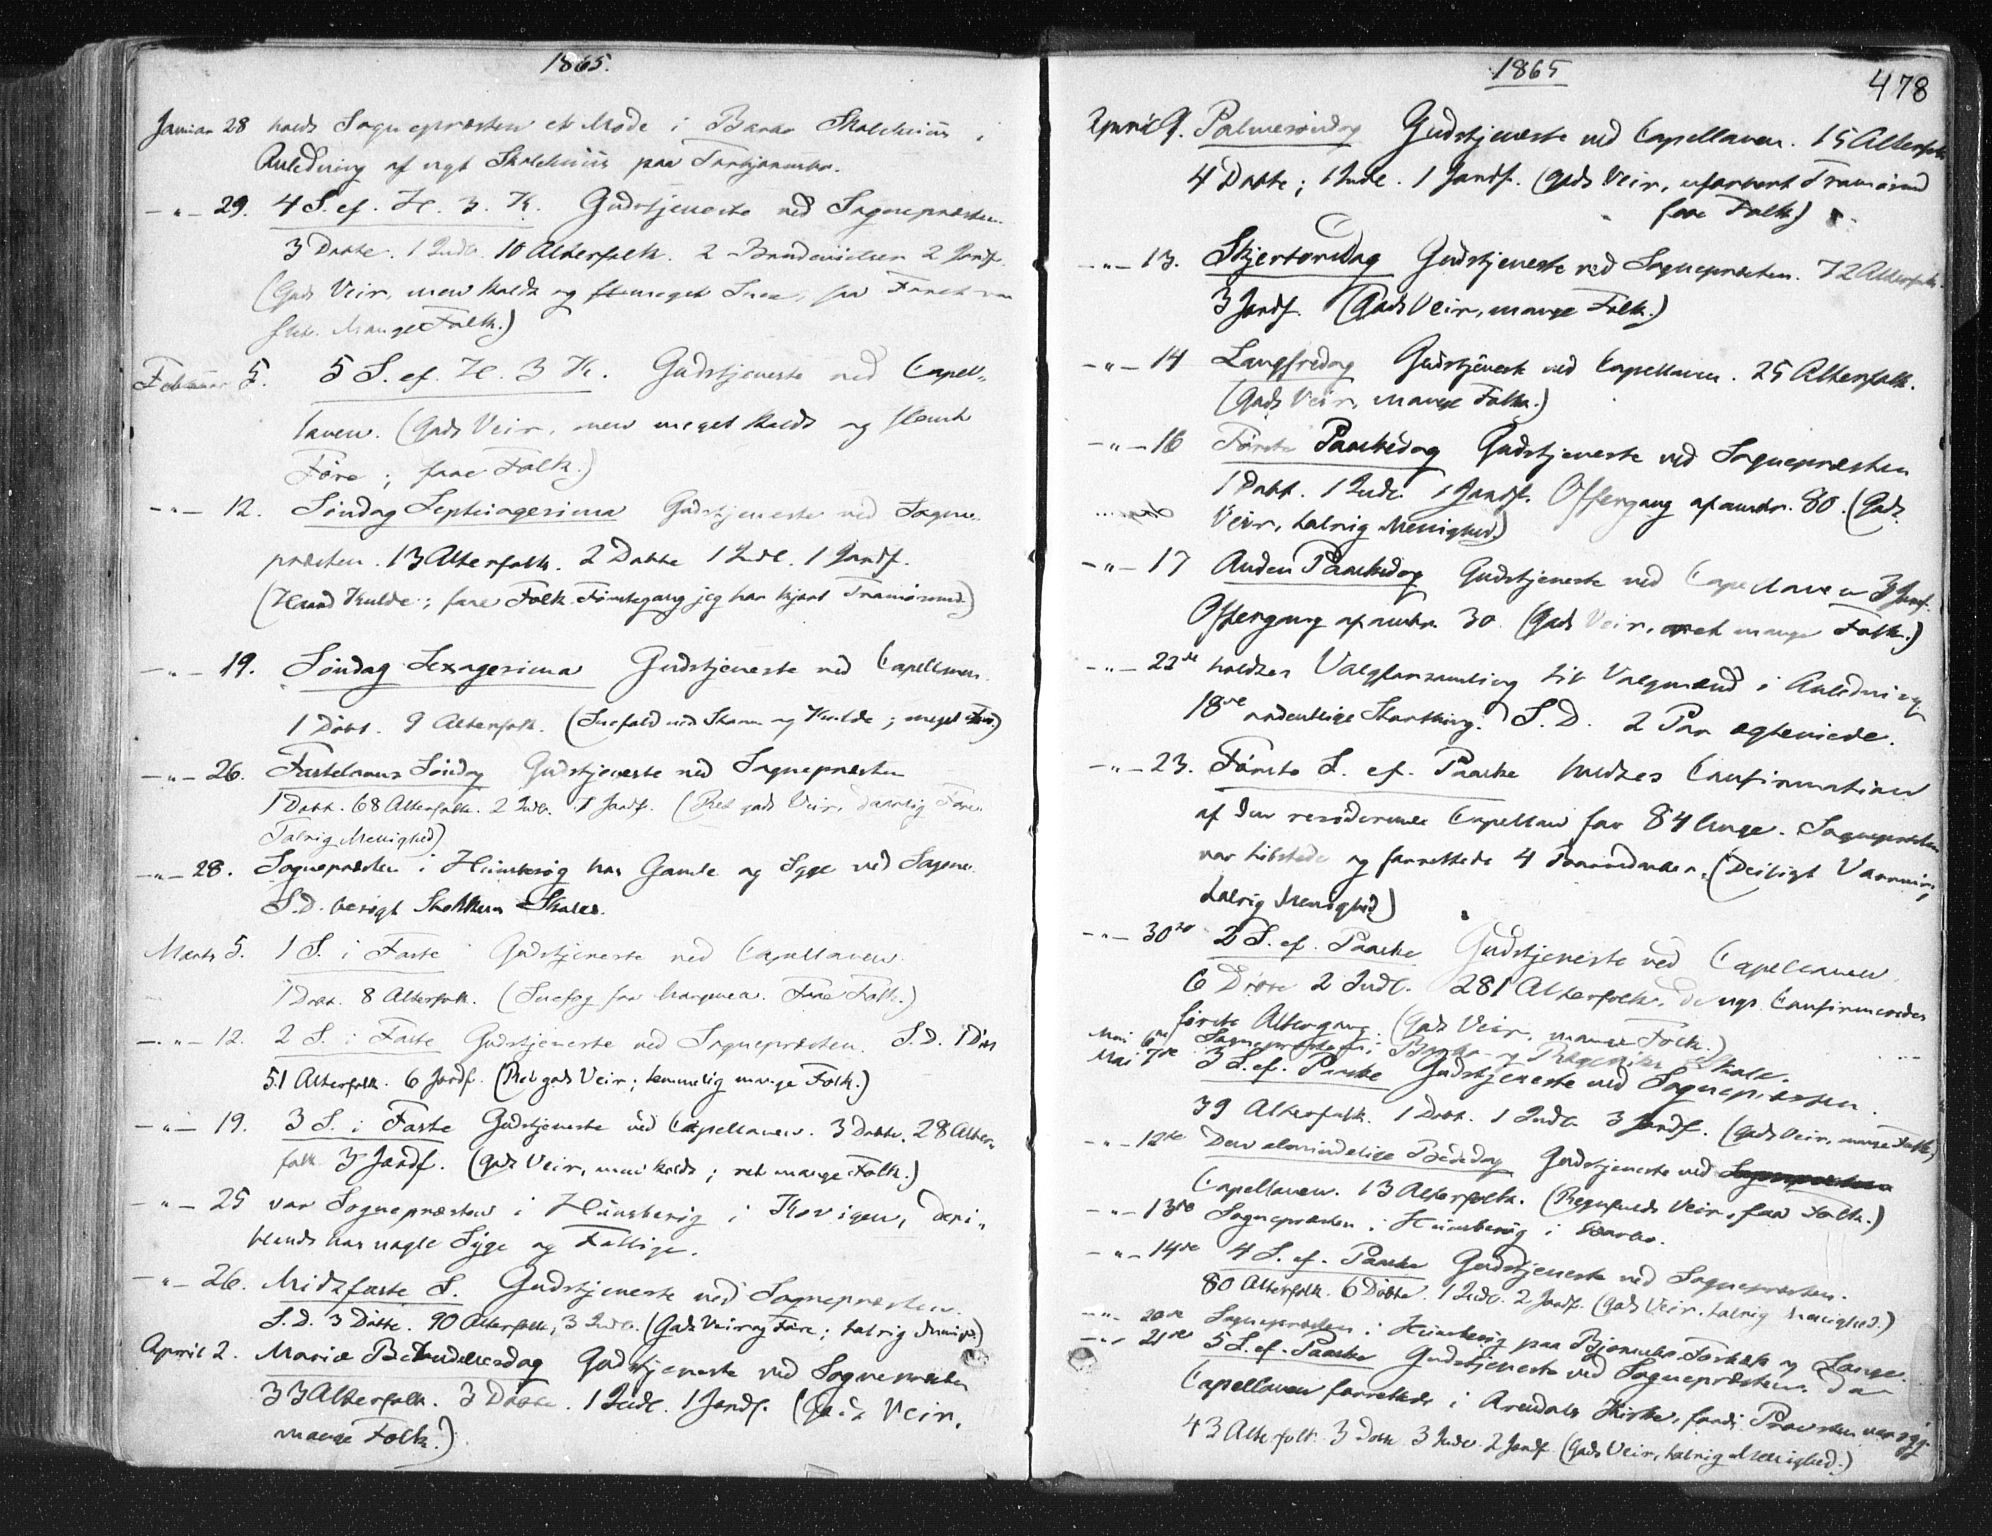 1865.
Januar 28 holdt Sognepræsten et Møde i Barbo Skolehuus i
Anledning af nyt Skolehuus paa
— " — 29. 4 S. ef. H. 3. K. Gudstjeneste ved Sognepræsten.
3 Døbte. 1 Indl. 10 Alterfolk. 2 Brudevielser 2 Jordf.
(Godt Veir, men koldt og meget Snee, saa Føret var
slet. Mange Folk.)
Februar 5. 5 S. ef. H. 3 K. Gudstjeneste ved Capel-
lanen. (Godt Veir, men meget koldt og slemt
Føre; faae Folk.)
— " — 12. Søndag Septuagesima Gudstjeneste ved Sogne-
præsten. 13 Alterfolk. 2 Døbte 1 Indl. 1 Jordf.
(Haard Kulde; faae Folk. Første gang jeg har kjørt Tromøsund.)
— " — 19. Søndag Sexagesima Gudstjeneste ved Capellanen.
1 Døbt. 9 Alterfolk. (Snefald ved Storm og Kulde; meget faae)
— " — 26. Fastelavns Søndag Gudstjeneste ved Sognepræsten
1 Døbt. 68 Alterfolk. 2 Indl. 1 Jordf. (Ret godt Veir, daarlig Føre.
Talrig Menighed)
— " — 28. Sognepræsten i Huusbesøg hos Gamle og Syge ved Sogne
S.D. besøgt Skole.
Marts 5. 1 S. i Faste Gudstjeneste ved Capellanen.
1 Døbt. 8 Alterfolk. (Snefog fra Morgenen. Faae Folk.)
— " — 12. 2 S. i Faste Gudstjeneste ved Sognepræsten. S.D. 1 Døbt
51 Alterfolk. 6 Jordf. (Ret godt Veir; temmelig mange Folk.)
— " — 19. 3 S. i Faste Gudstjeneste ved Capellanen. 3 Døbte. 28 Alter-
folk 3 Jordf. (Godt Veir, men koldt; ret mange Folk.)
— " — 25 var Sognepræsten i Huusbesøg i Kovigen, deri-
blandt hos nogle Syge og Fattige.
— " — 26. Midfaste S. Gudstjeneste ved Sognepræsten.
S.D. 3 Døbte. 90 Alterfolk, 3 Indl. (Godt Veir og Føre; talrig Menigh.)
April 2. Mariæ Bebudelsesdag Gudstjeneste ved Sognepræsten
33 Alterfolk. 3 Døbte. 1 Indl. 1 Jordf. (Godt Veir,
mange Folk.)
1865
478
April 9. Palmesøndag Gudstjeneste ved Capellanen. 15 Alterfolk
4 Døbte; 1 Indl. 1 Jordf. (Godt Veir, Tromøsund
faae Folk)
— " — 13. Skjertorsdag Gudstjeneste ved Sognepræsten. 72 Alterfolk.
3 Jordf. (Godt Veir, mange Folk.)
— " — 14 Langfredag Gudstjeneste ved Capellanen. 25 Alterfolk.
(Godt Veir, mange Folk.)
— " — 16 Første Paaskedag Gudstjeneste ved Sognepræsten
1 Døbt. 1 Indl. 1 Jordf. Offergang af omtr. 80. (Godt
Veir, talrig Menighed.)
— " — 17 Anden Paaskedag Gudstjeneste ved Capellanen 3 Jordf.
Offergang af omtr. 30. (Godt Veir, ret mange Folk.)
— " — 22de holdtes Valgforsamling til Valgmænd i Anledning
18de ordentlige Storthing. S.D. 2 Par ægteviede.
— " — 23. Første S. ef. Paaske holdtes Confirmation
af den residerende Capellan for 84 Unge. Sognepræsten
var tilstede og forrettede 4 (Deiligt Vaarveir,
talrig Menighed)
— " — 30te 2 S. ef. Paaske Gudstjeneste ved Capellanen
6 Døbte 2 Indl. 281 Alterfolk, de nys Confirmeredes
første Altergang. (Godt Veir, mange Folk.)
Mai 6te Sognepræsten i Barbo og Skole.
Mai 7de 3 S. ef. Paaske Gudstjeneste ved Sognepræsten.
39 Alterfolk. 1 Døbt. 1 Indl. 3 Jordf. (Godt Veir, mange Folk.)
— " — 12te Den almindelige Bededag Gudstjeneste ved
Capellanen. 13 Alterfolk. (Regnfuldt Veir, faae Folk.)
— " — 13de Sognepræsten i Huusbesøg i Barbo.
— " — 14de 4 S. ef. Paaske Gudstjeneste ved Sognepræsten.
80 Alterfolk. 6 Døbte. 1 Indl. 2 Jordf. (Godt Veir, talrig Menighed.)
— " — 20de Sognepræsten i Huusbesøg paa og Lange.
— " — 21de 5 S. ef. Paaske Gudstjeneste ved Sognepræsten. Da
Capellanen forrettede i Arendals Kirke, fordi Provsten var syg.
43 Alterfolk. 3 Døbte 3 Indl. 2 Jordf (Godt Veir, talrig Menighed.)